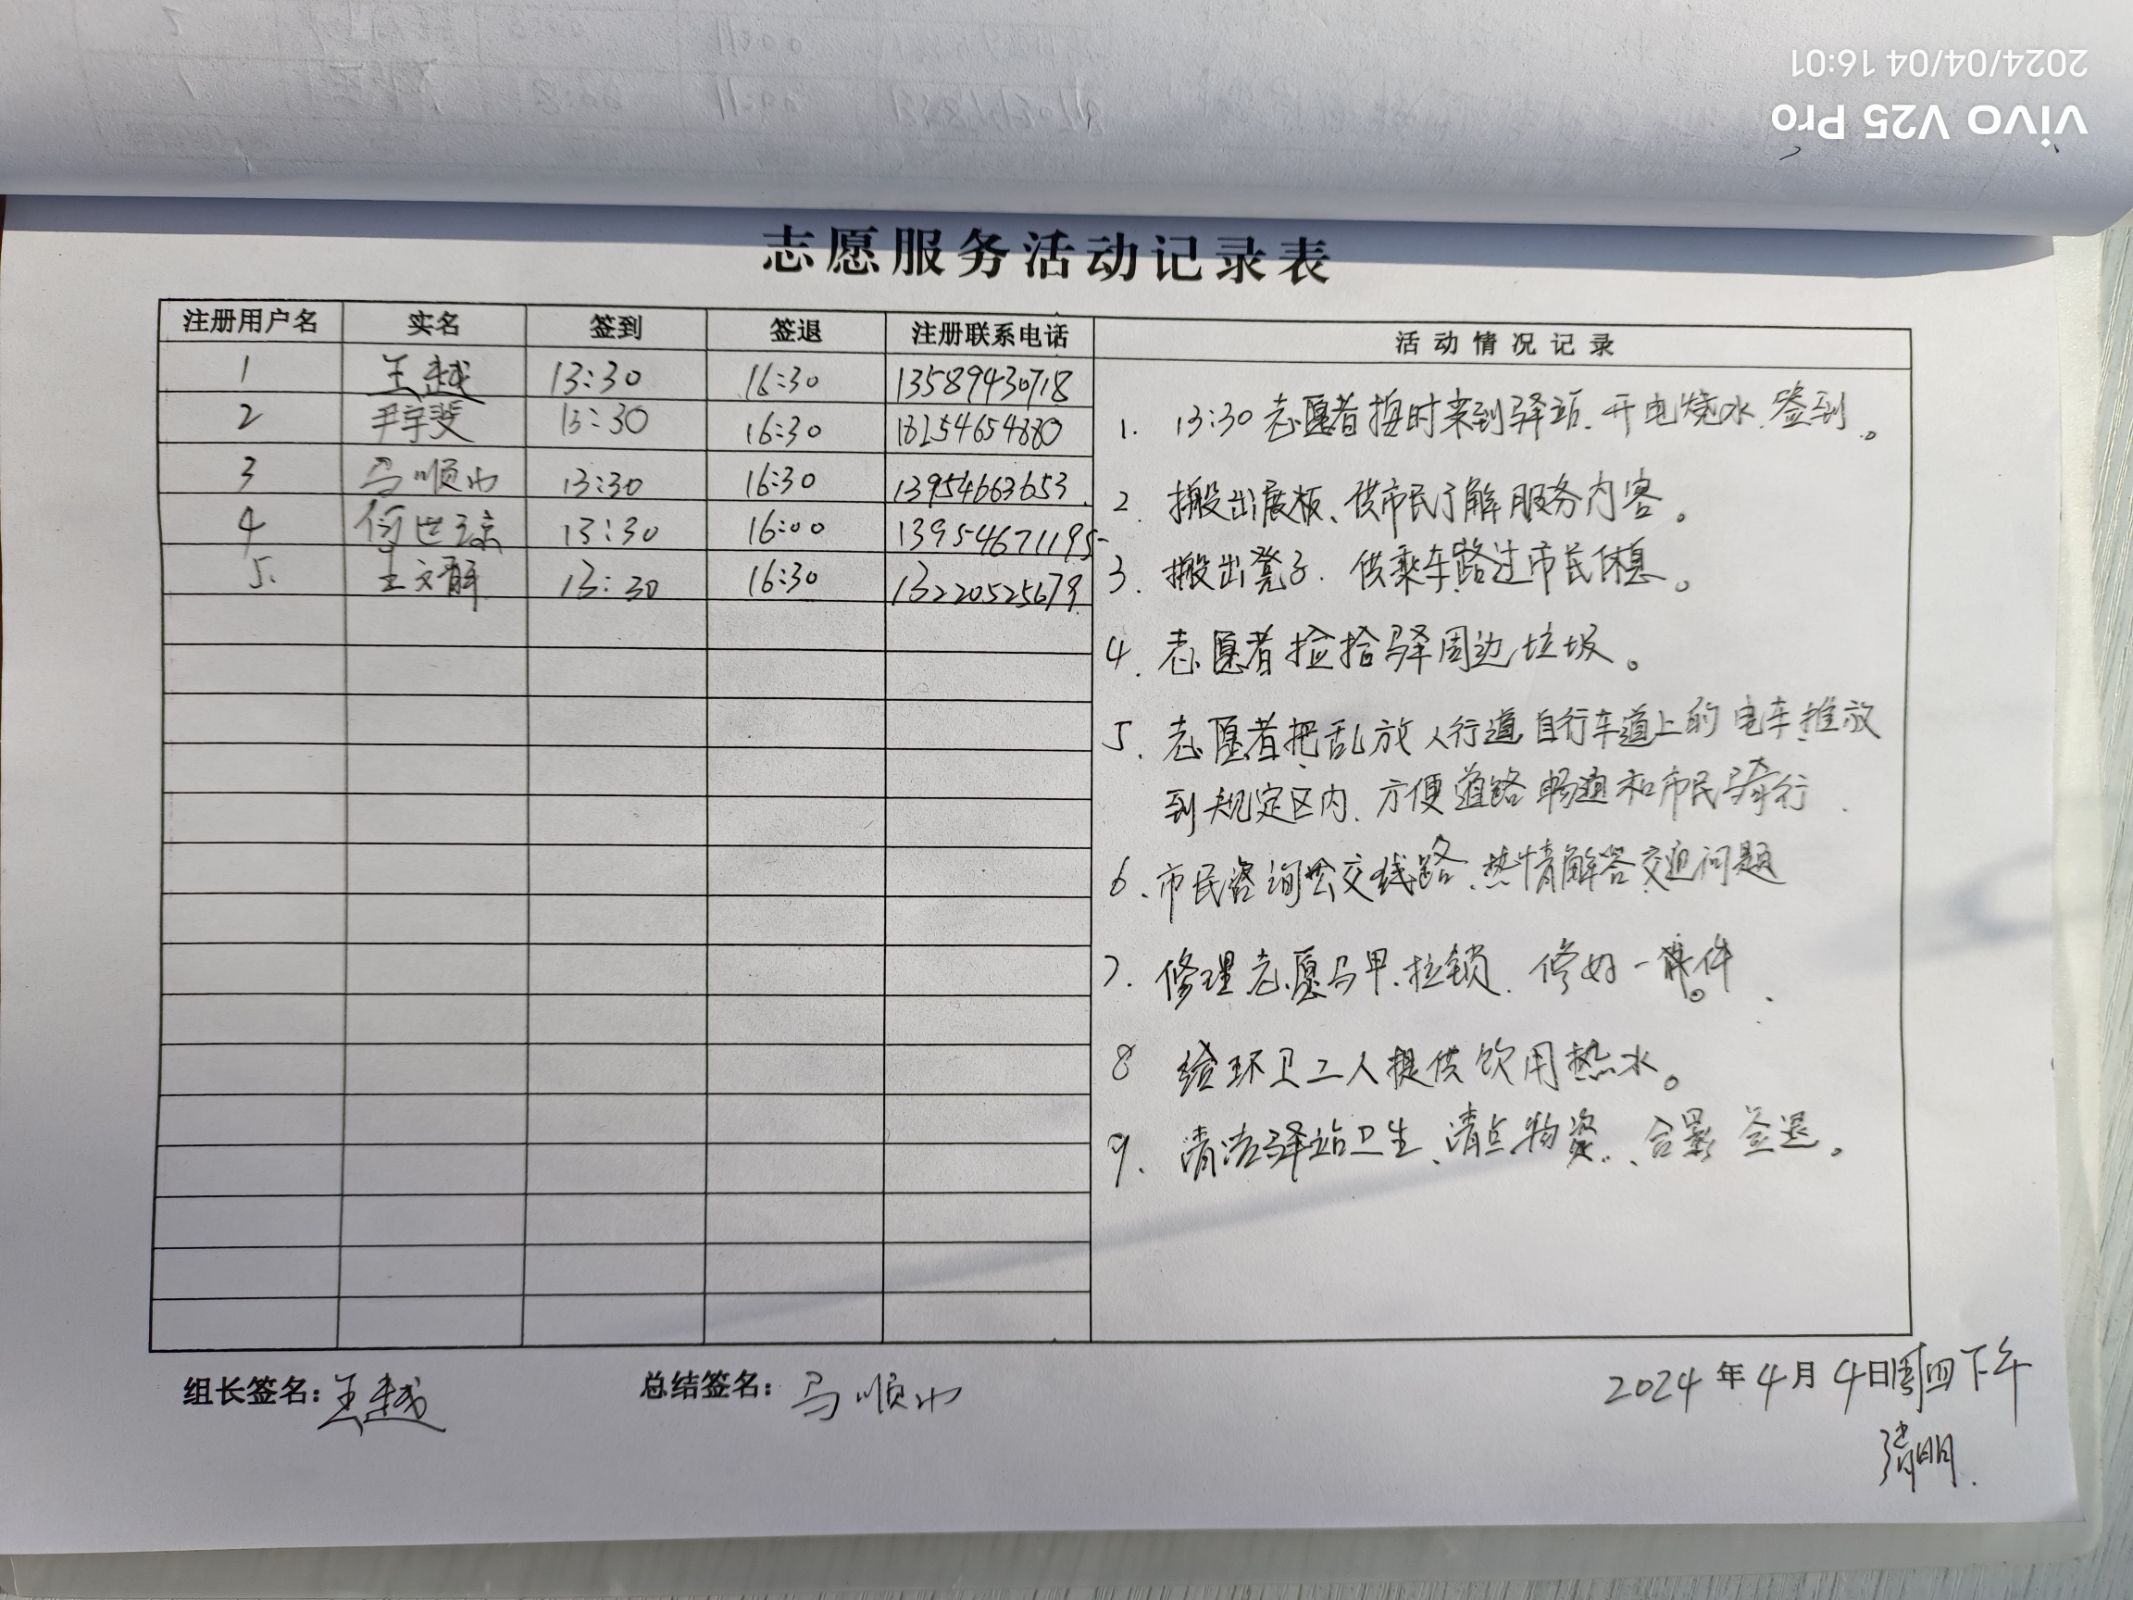 2024/04/04 16:01
vivo V25 Pro
志愿服务活动记录表
注册用户名 实名 签到 签退 注册联系电话 活动情况记录
1 王越 13:30 16:30 13589430718
2 尹宇斐 13:30 16:30 18254654880
3 马顺 13:30 16:30 13954663653
4 何世 13:30 16:00 13954671195
5. 王文静 13:30 16:30 13220525679
1. 13:30志愿者按时来到驿站.开电烧水.签到。
2. 搬出展板、供市民了解服务内容。
3. 搬出凳子.供乘车路过市民休息。
4. 志愿者捡拾驿周边垃圾。
5. 志愿者把乱放人行道自行车道上的电车推放
到规定区内.方便道路畅通和市民骑行.
6、市民咨询公交线路、热情解答交通问题
7. 修理志愿马甲.拉锁.修好一件.
8 给环卫工人提供饮用热水。
9、清洁驿站卫生、清点物资、合影 签退。
组长签名：王越 总结签名：马顺 2024年4月4日周四下午
清明.